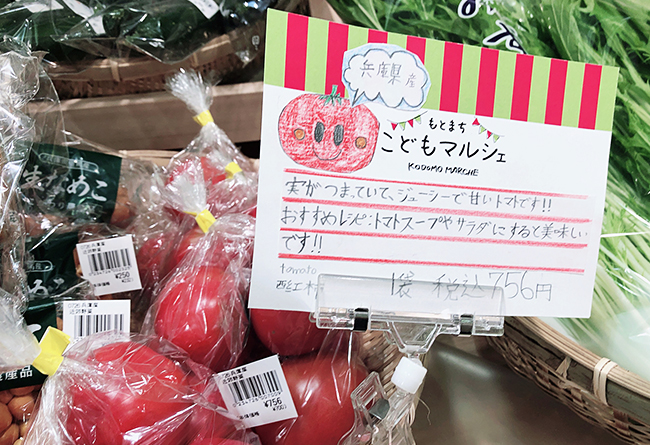 兵庫県産
もとまち
こどもマルシェ
KODOMO MARCHE
実がつまっていて、ジューシーで甘いトマトです!!
おすすめレシピ:トマトスープやサラダにすると美味しい
です!!
tomato
1袋 税込756円
近郊野菜
¥250
近郊野菜
近郊野菜
¥756
(700)